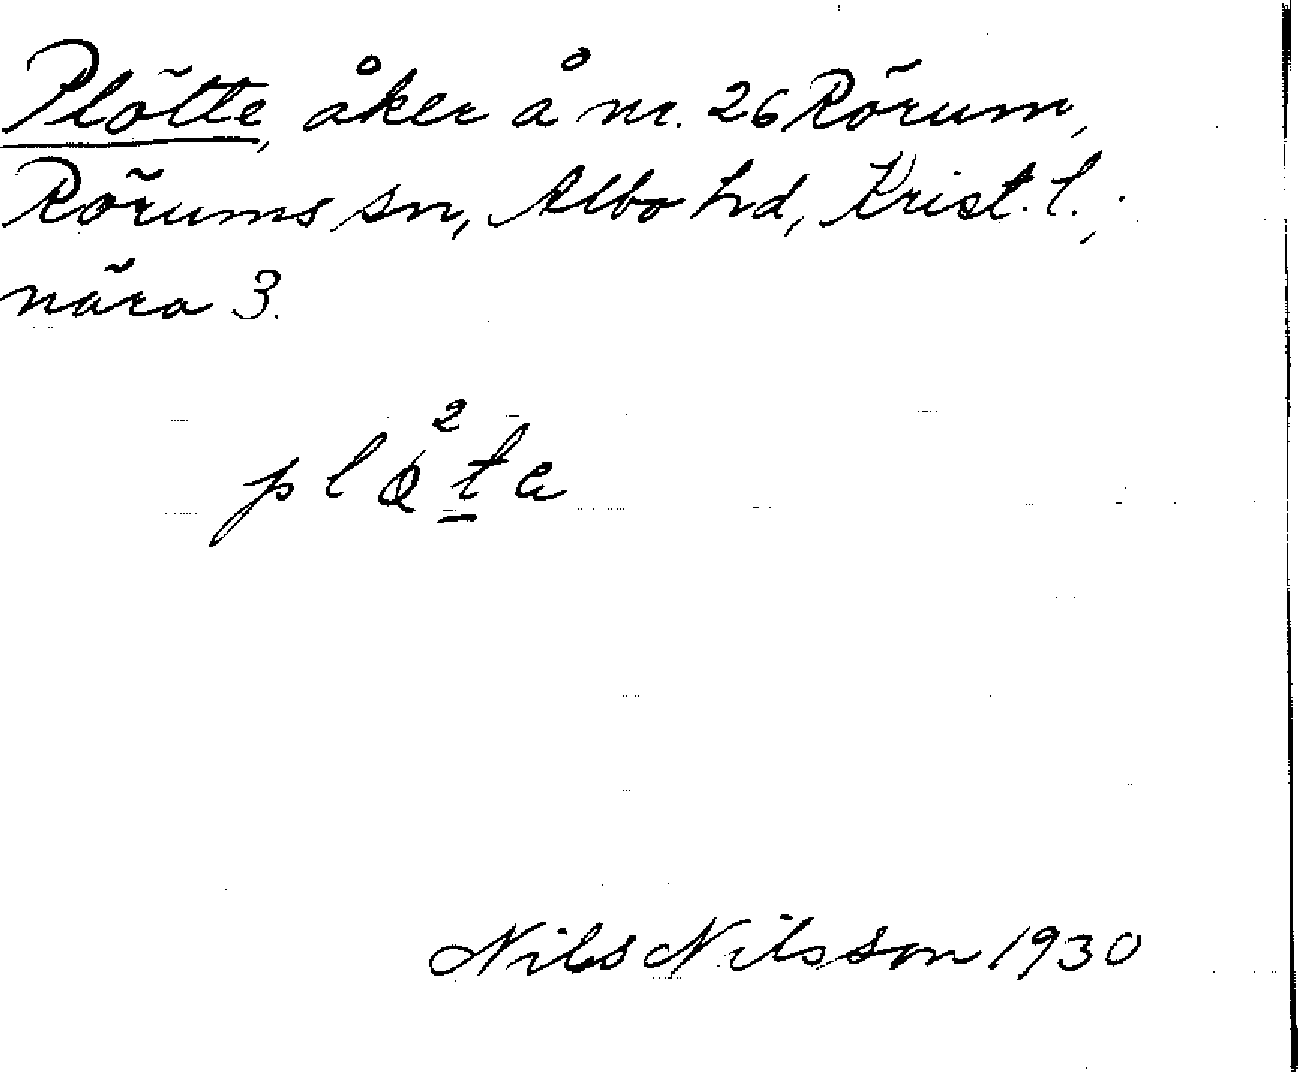 Plötte, åker å nr. 26 Rörum,
Rörums sn, Albo hd, Krist. l.,
nära 3.
Nils Nilsson 1930